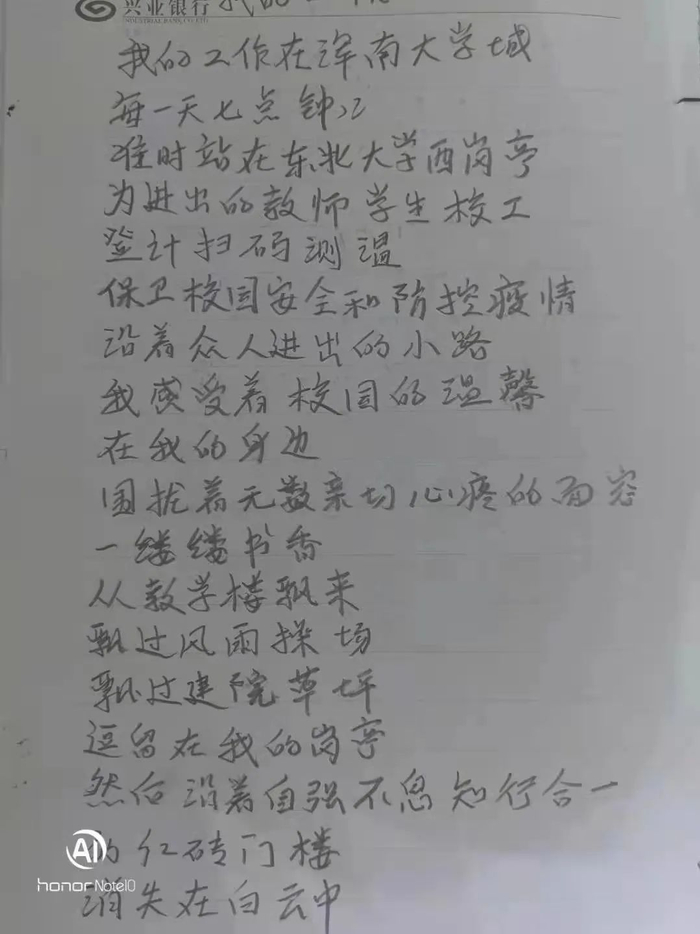 兴业银行
INDUSTRIAL BANK CO.,LTD
我的工作在浑南大学城
每一天七点钟
准时站在东北大学西岗亭
为进出的教师学生校工
登计扫码测温
保卫校园安全和防控疫情
沿着众人进出的小路
我感受着校园的温馨
在我的身边
围拢着无数亲切心疼的面容
一缕缕书香
从教学楼飘来
飘过风雨操场
飘过建院草坪
逗留在我的岗亭
然后沿着自强不息知行合一
的红砖门楼
消失在白云中
AI
honor Note10